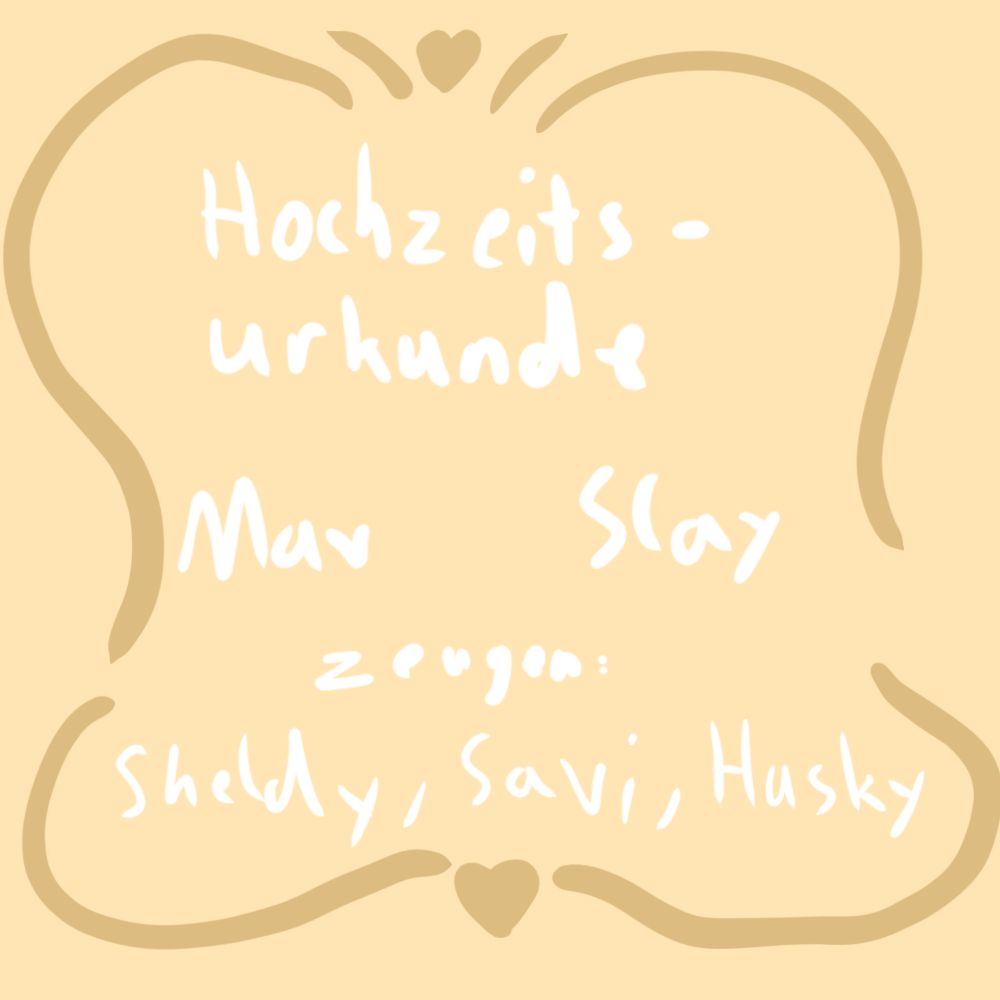 Hochzeits-
urkunde
Mav Slay
zeugen:
Sheldy, Savi, Husky